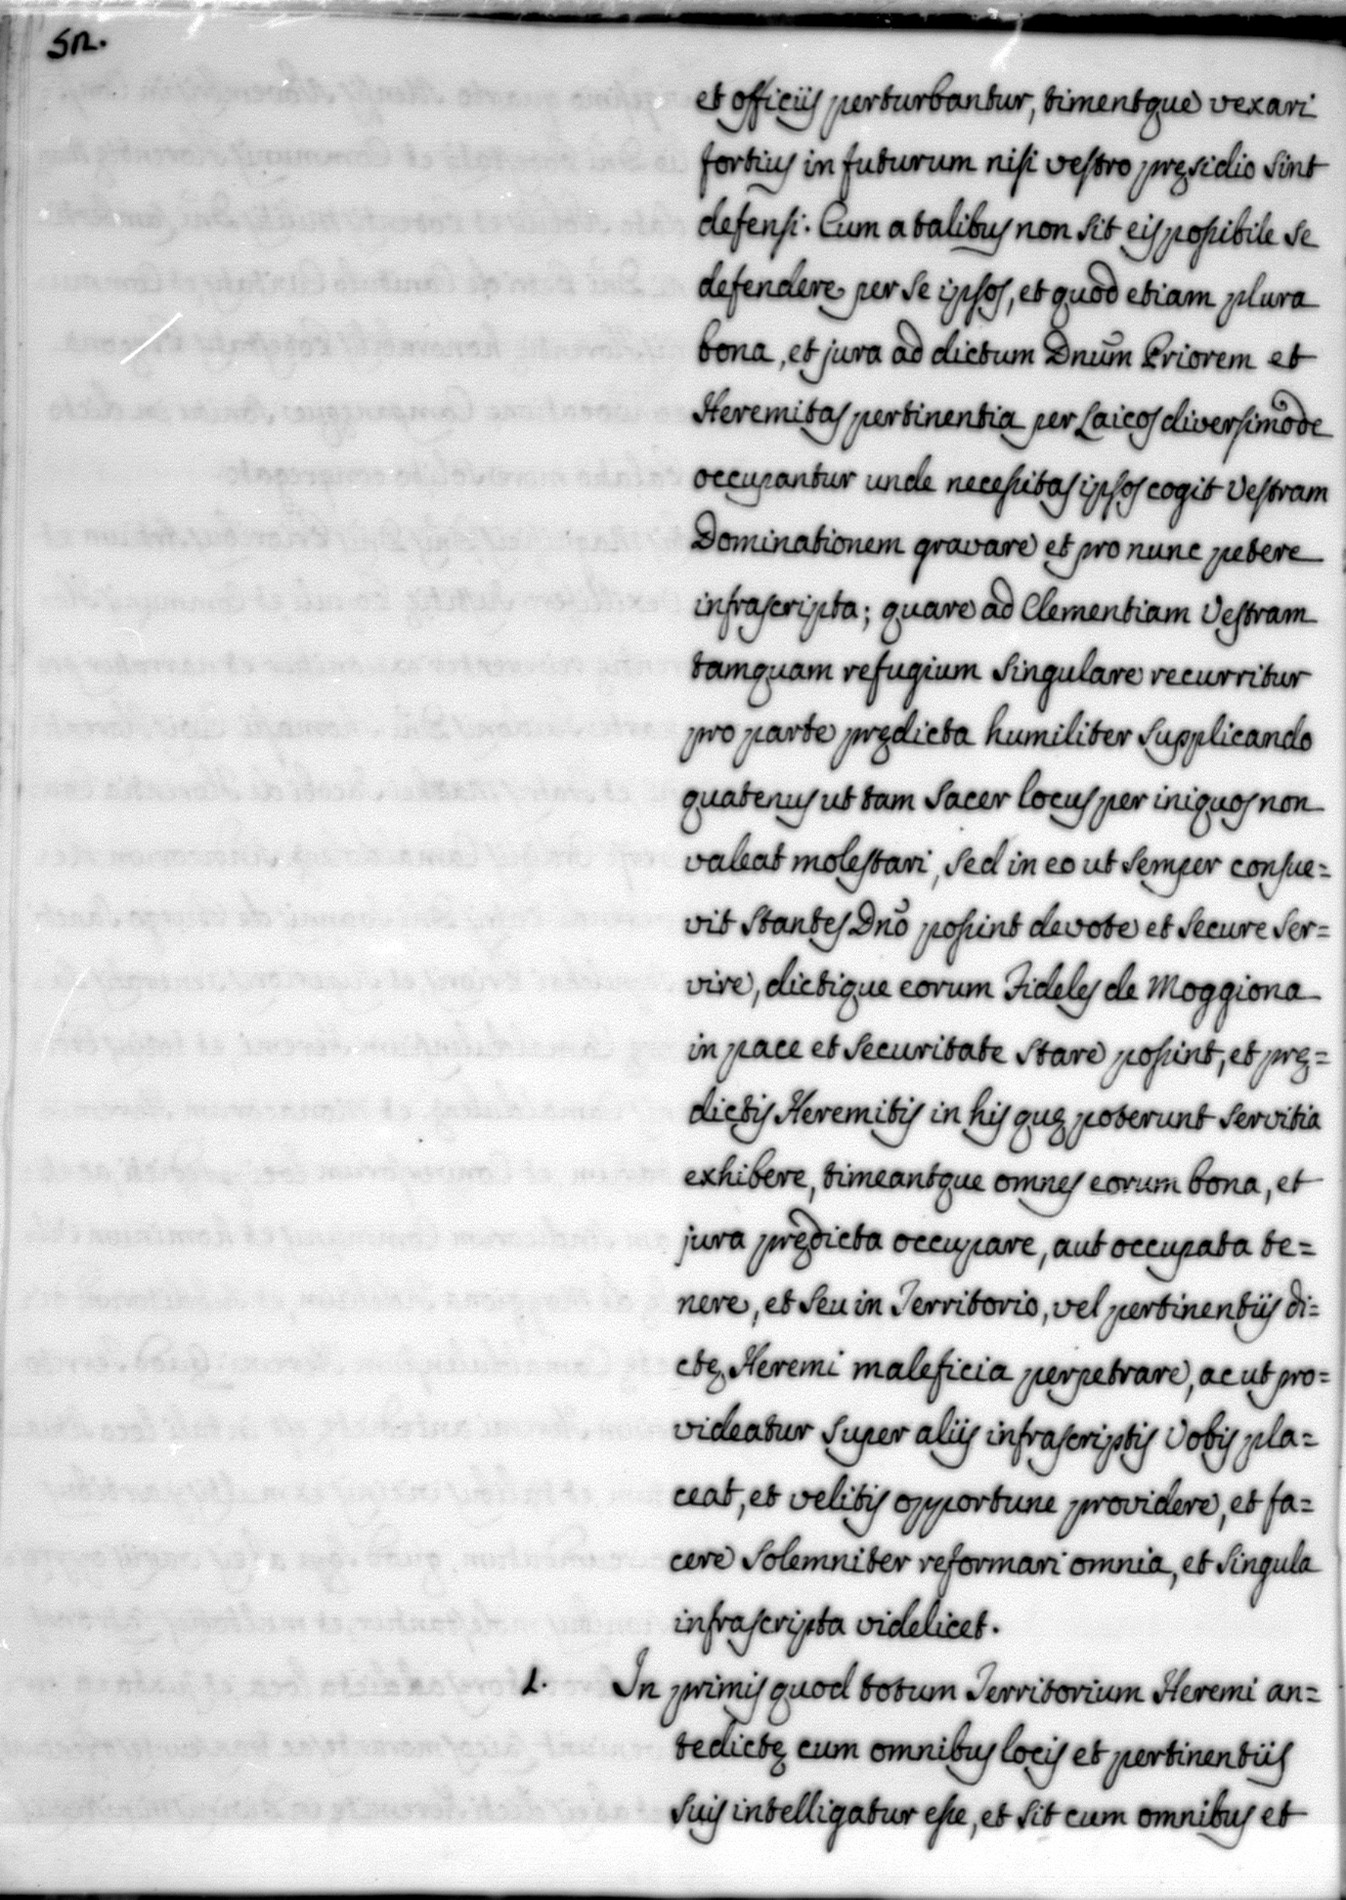 52.
et officiis perturbantur, timentque vexari
fortius in futurum nisi vestro pręsidio sint
defensi. Cum a talibus non sit eis possibile se
defendere per se ipsos, et quod etiam plura
bona, et jura ad dictum Dnum̃ Priorem et
Heremitas pertinentia per Laicos diversimode
occupantur unde necessitas ipsos cogit Vestram
Dominationem gravare et pro nunc petere
infrascripta; quare ad Clementiam Vestram
tamquam refugium singulare recurritur
pro parte prędicta humiliter supplicando
quatenus ut tam sacer locus per iniquos non
valeat molestari, sed in eo ut semper consue=
vit stantes Dnõ possint devote et secure ser=
vire, dictique eorum Fideles de Moggiona
in pace et securitate stare possint, et prę=
dictis Heremitis in his quę poterunt servitia
exhibere, timeantque omnes eorum bona, et
jura prędicta occupare, aut occupata te=
nere, et seu in Territorio, vel pertinentiis di=
ctę Heremi maleficia perpetrare, ac ut pro=
videatur super aliis infrascriptis Vobis pla=
ceat, et velitis opportune providere, et fa=
cere solemniter reformari omnia, et singula
infrascripta videlicet.
1. In primis quod totum Territorium Heremi an=
tedictę cum omnibus locis et pertinentiis
suis intelligatur esse, et sit cum omnibus et